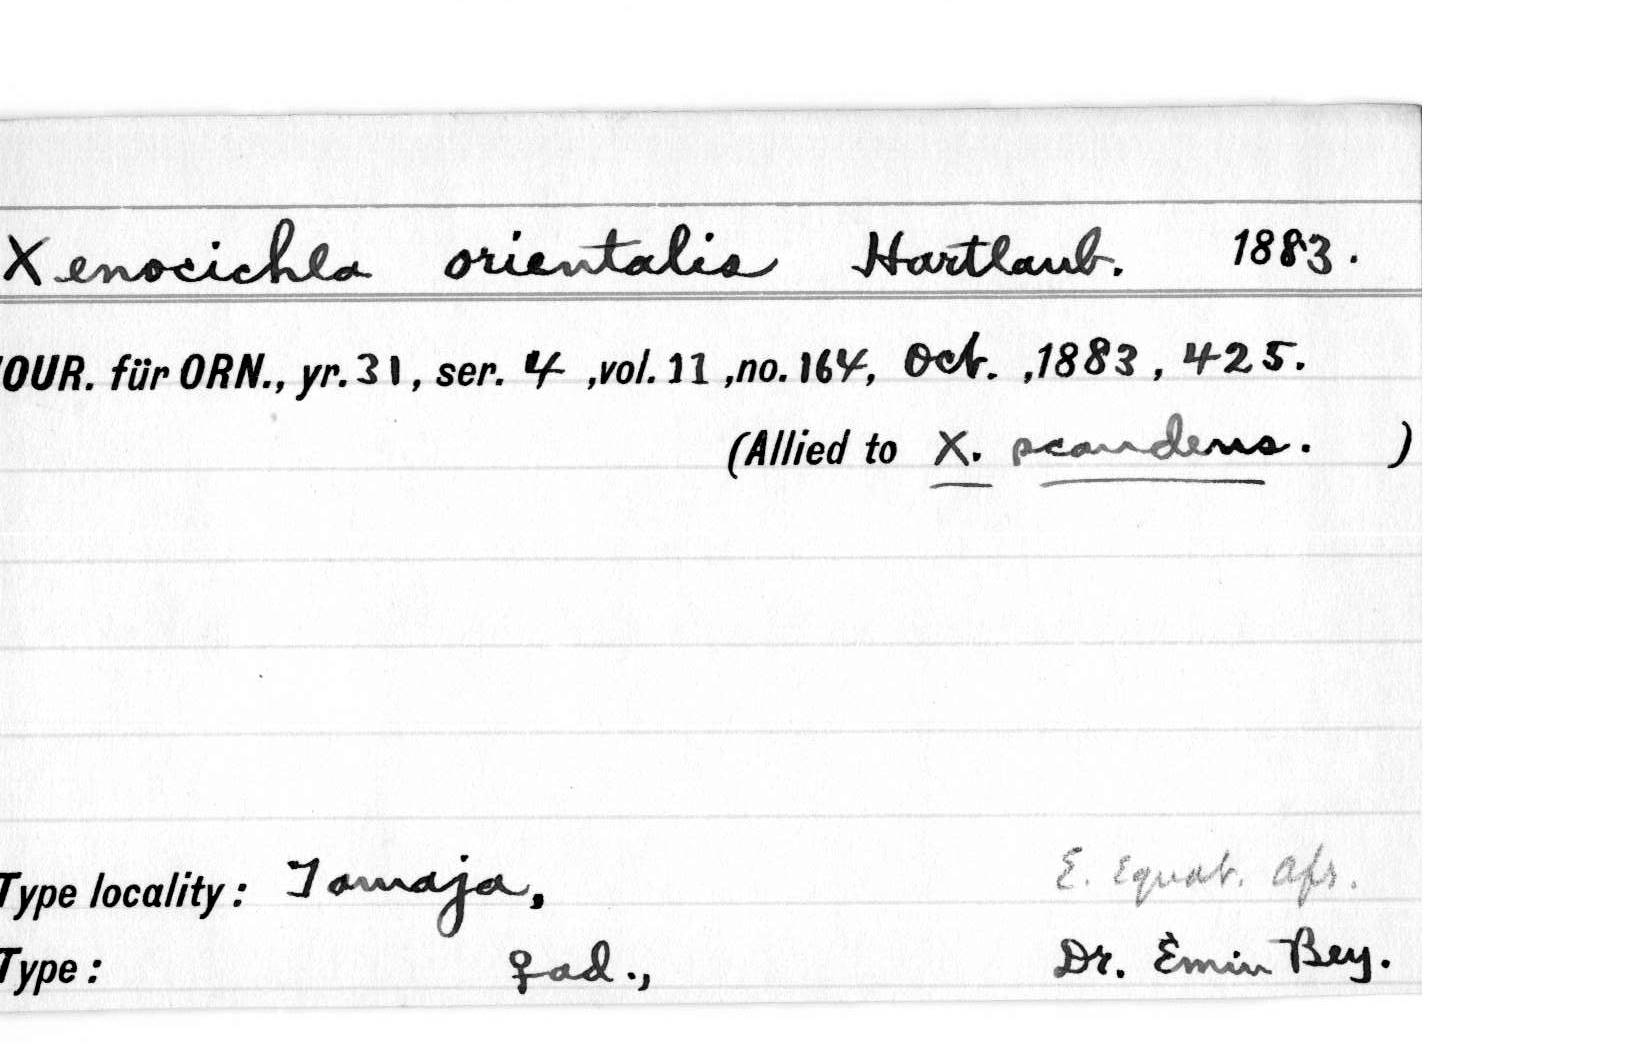 Xenocichla orientalis Hartlaub. 1883.
JOUR. für ORN., yr. 31, ser. 4, vol. 11, no. 164, Oct., 1883, 425.
(Allied to X. scandens. )
Type locality: Tamaja, E. Equat. Afr.
Type: ♀ ad., Dr. Emin Bey.